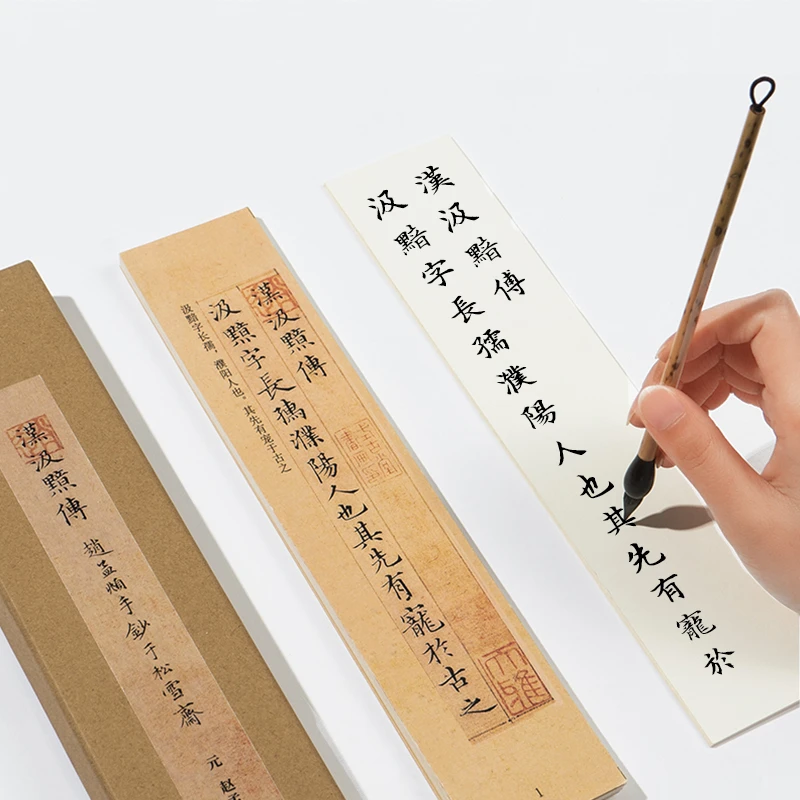 漢汲黯傳
趙孟頫手鈔于松雪齋
元 赵
漢汲黯傳
汲黯字長孺濮陽人也其先有寵於古之
汲黯字长孺，濮阳人也。其先有宠于古之
大雅
1
漢汲黯傳
汲黯字長孺濮陽人也其先有寵於